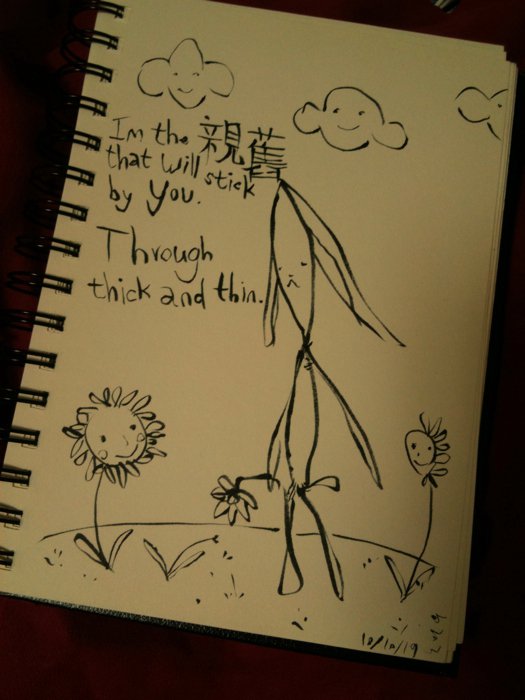 Im the 親舊
that will stick
by you.
Through
thick and thin.
10/10/19